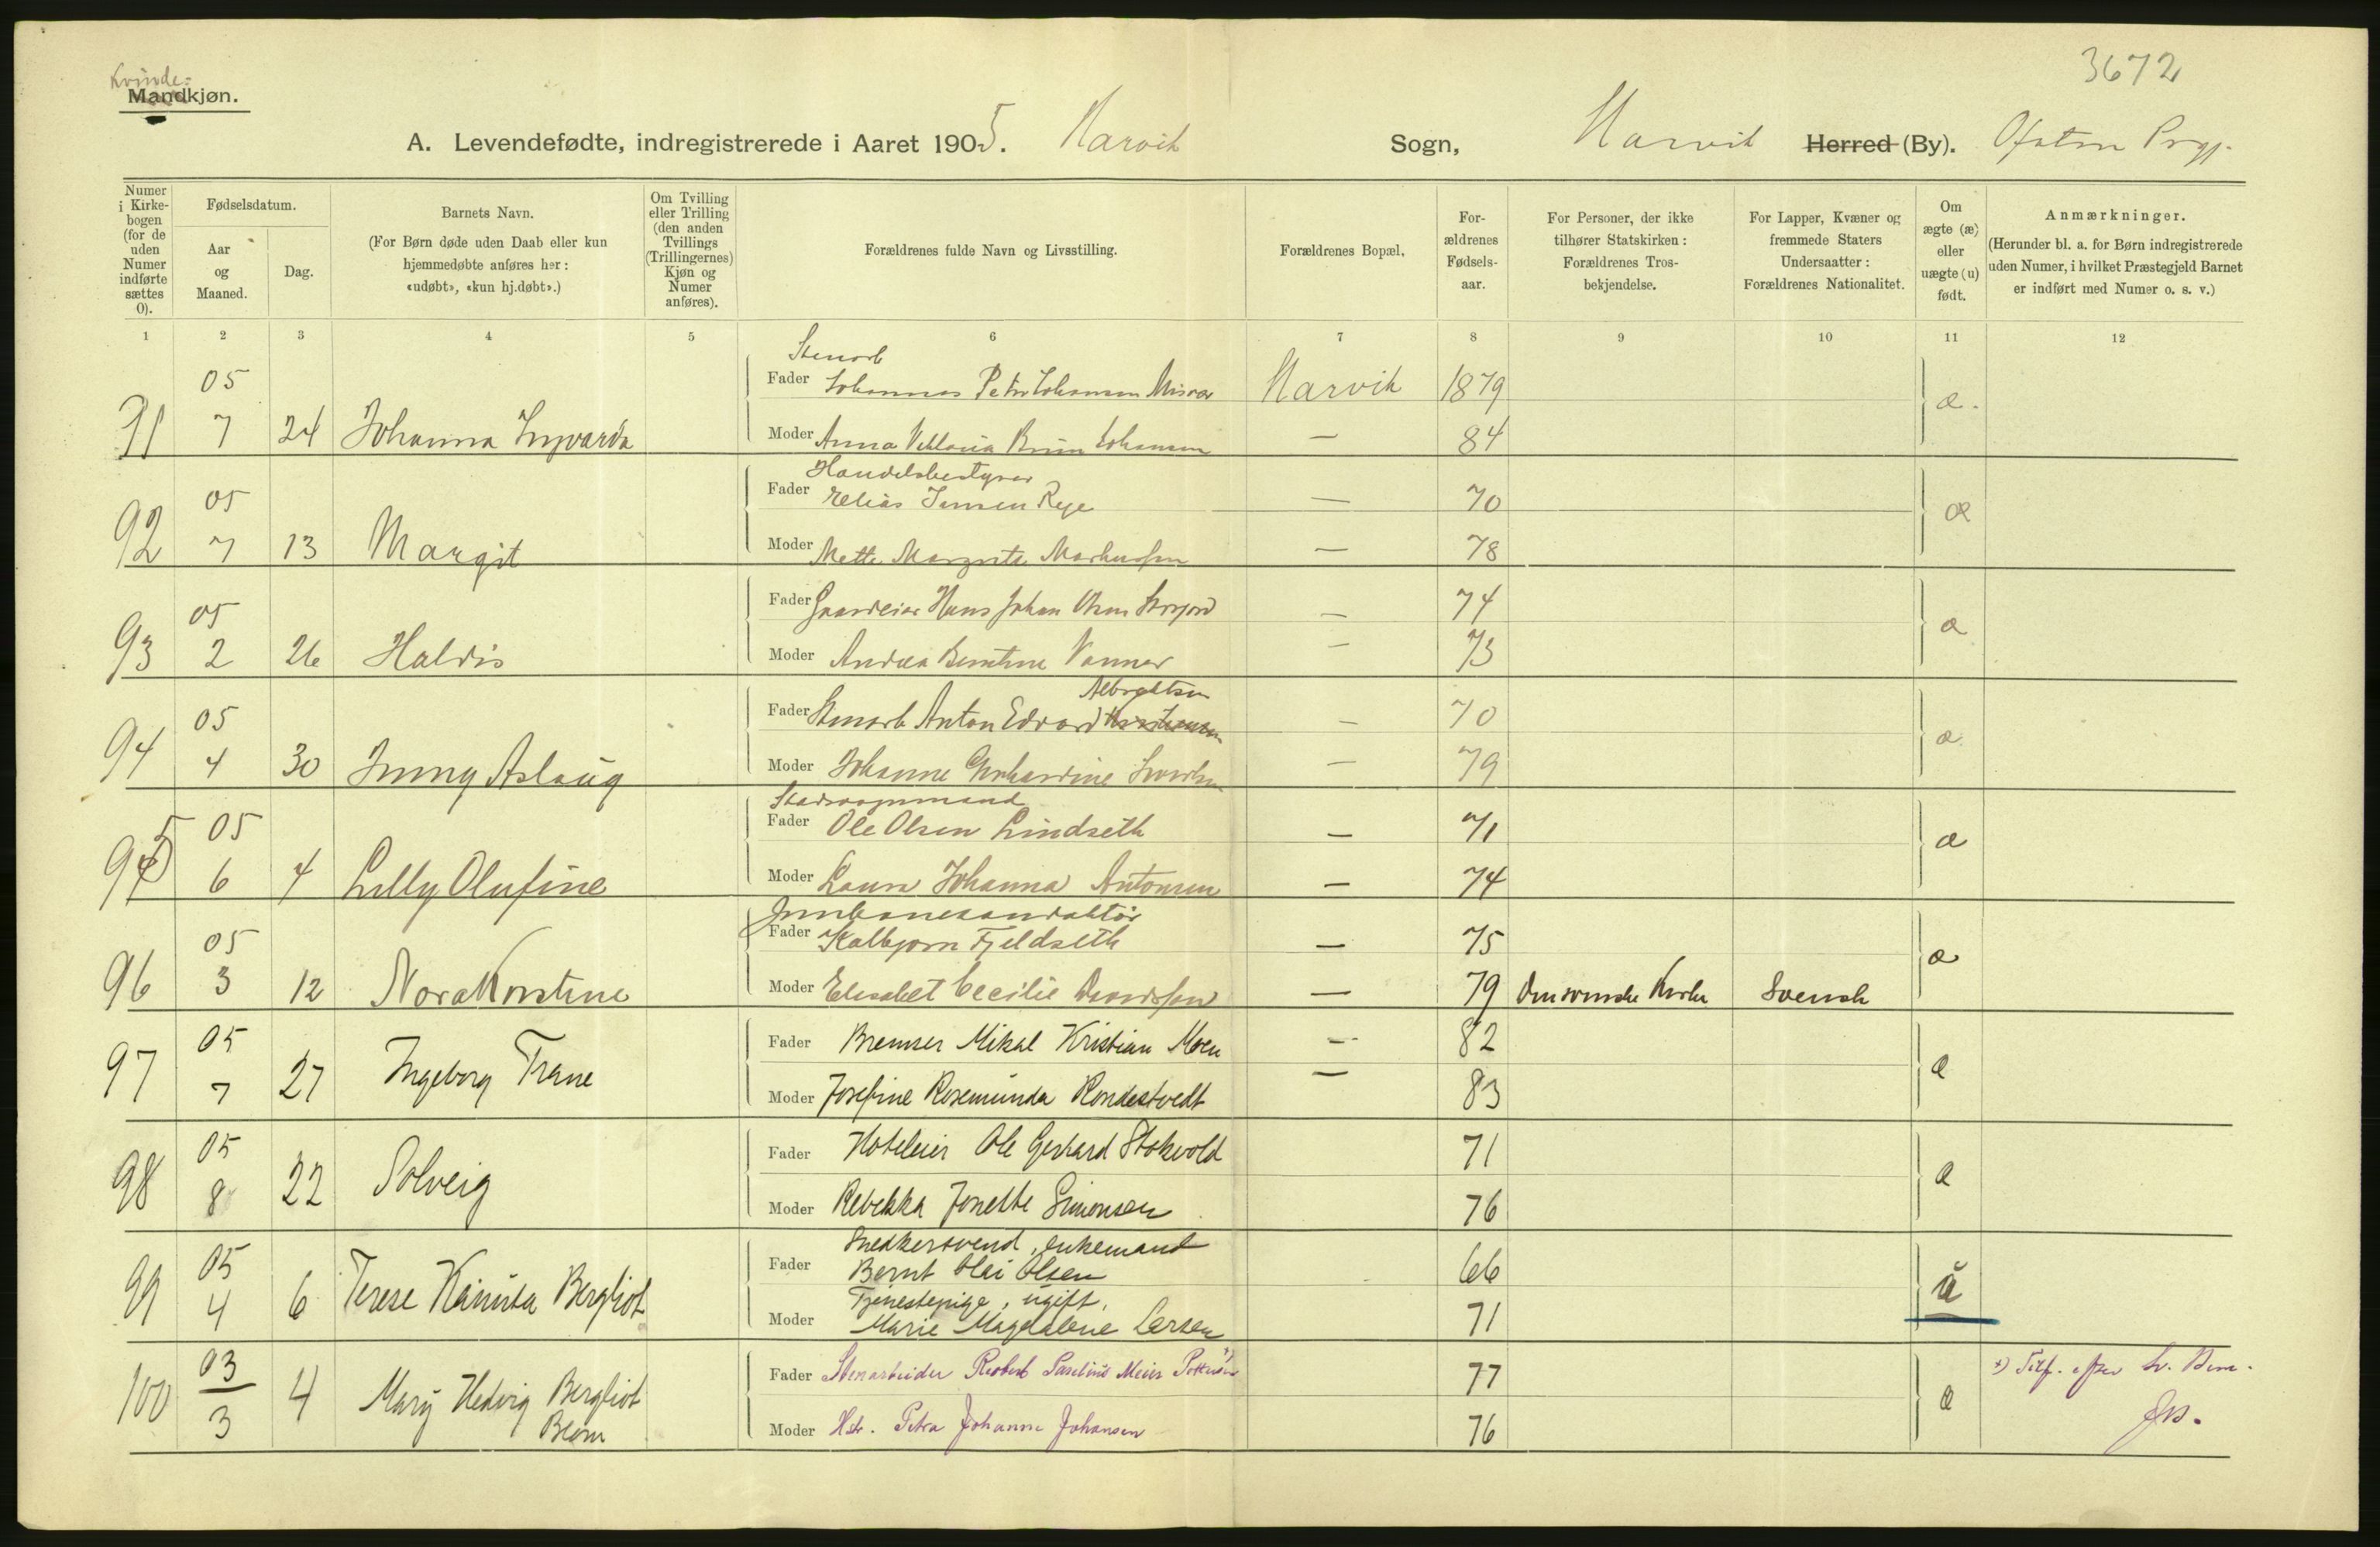 3672
Kvinde-
Mandkjøn.
A. Levendefødte, indregistrerede i Aaret 1905. Narvik Sogn, Narvik Herred (By). Ofoten Prgj.
Numer i Kirke-bogen (for de uden Numer indførte sættes 0).
Fødselsdatum.
Aar og Maaned.
Dag.
Barnets Navn.
(For Børn døde uden Daab eller kun hjemmedøbte anføres her: «udøbt», «kun hj.døbt».)
Om Tvilling eller Trilling (den anden Tvillings (Trillingernes) Kjøn og Numer anføres).
Forældrenes fulde Navn og Livsstilling.
Forældrenes Bopæl,
For-ældrenes Fødsels-aar.
For Personer, der ikke tilhører Statskirken: Forældrenes Tros-bekjendelse.
For Lapper, Kvæner og fremmede Staters Undersaatter: Forældrenes Nationalitet.
Om ægte (æ) eller uægte (u) født.
Anmærkninger.
(Herunder bl. a. for Børn indregistrerede uden Numer, i hvilket Præstegjeld Barnet er indført med Numer o. s. v.)
1 2 3 4 5 6 7 8 9 10 11 12
Stenarb
05 Fader Johannes Peter Johansen Misvær Narvik 1879
91 7 24 Johanna Ingvarda æ.
Moder Anna Viktoria Bruun Johansen — 84
Handelsbestyrer
05 Fader Elias Jensen Rege — 70
92 7 13 Margit æ
Moder Mette Margrete Markussen — 78
05 Fader Gaardeier Hans Johan Olsen Storjord — 74
93 2 26 Haldis æ
Moder Andrea Berntine Vanner — 73
Albrigtsen
05 Fader Stenarb Anton Edvard — 70
94 4 30 Jenny Aslaug æ
Moder Johanne Gerhardine — 79
05 Fader Ole Olsen Lindseth — 71
95 6 4 Lilly Olufine æ
Moder Laura Johanna Antonsen — 74
Jernbanekonduktør
05 Fader Kolbjørn Fjeldseth — 75
96 3 12 Nora Kirstine æ
Moder Elisabet Cecilie Davidsson — 79 Den svenske Kirke Svensk
05 Fader Bremser Mikal Kristian Moen — 82
97 7 27 Ingeborg Trane æ
Moder Josefine Rosemunda Rondestvedt — 83
05 Fader Hoteleier Ole Gerhard Stokvold 71
98 8 22 Solveig æ
Moder Rebekka Jonette Simonsen 76
Snedkersvend, enkemand
05 Fader Bernt Olai Olsen 66
99 4 6 Terese Kamilla Bergliot u
Tjenestepige, ugift,
Moder Marie Magdalene Larsen 71
03 Fader Stenarbeider Robert Paselius Meier Pettersen x) 77 x) Tilf. efter
100 3 4 Mary Hedvig Bergliot Blom æ
Moder Hst. Petra Johanna Johansen 76